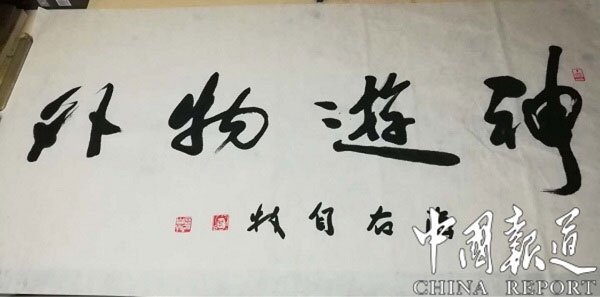 神遊物外
右自牧
中國報道
CHINA REPORT